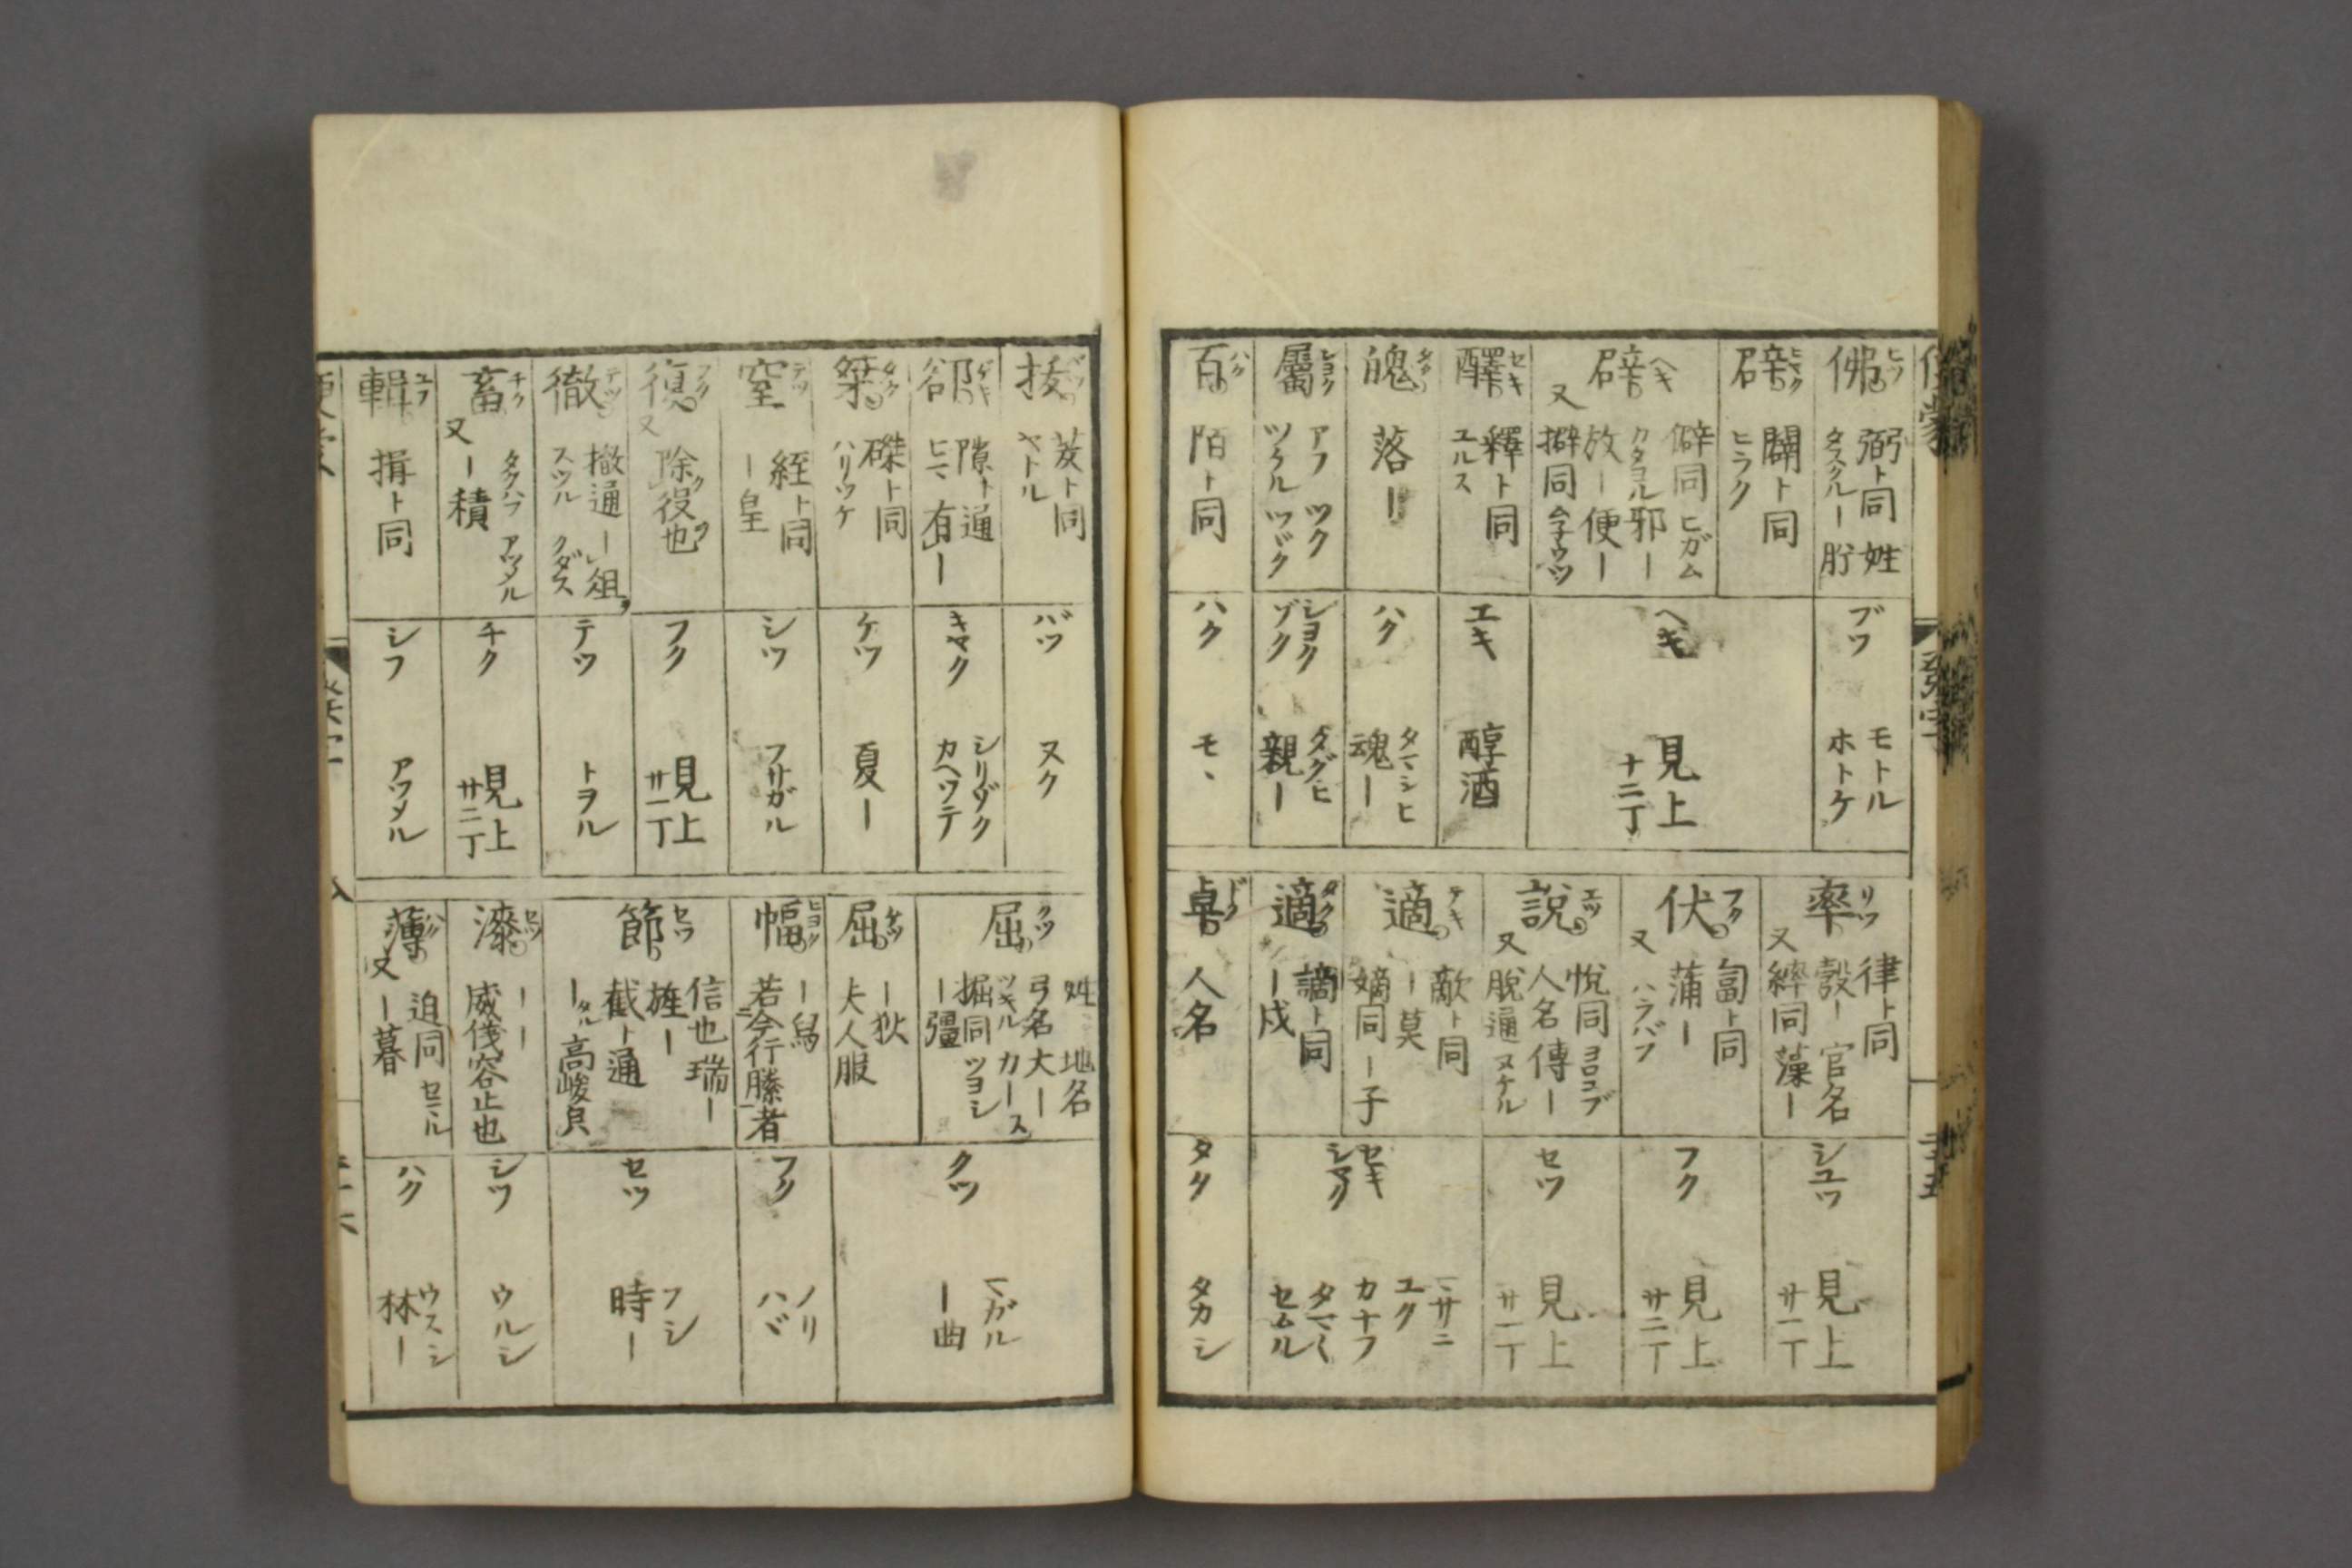 佛 ヒツ
弼ト同 姓
タスクル ー肸
ブツ
モトル
ホトケ
辟 ヒヤク
闢ト同
ヒラク
辟 ヘキ
僻同 ヒガム
カタヨル 邪ー
放ー 便ー
又 擗同 ムネウツ
ヘキ
見上
十二丁
醳 セキ
釋ト同
ユルス
エキ
醇酒
魄 タク
落ー
ハク
タマシヒ
魂ー
屬 シヨク
アフ ツク
ツクル ツヾク
シヨク
ゾク
タグヒ
親ー
百 ハク
陌ト同
ハク
モヽ
率 リツ
律ト同
彀ー 官名
又 繂同 藻ー
シユツ
見上
廿一丁
伏 フク
匐ト同
又 蒲ー
ハラバフ
フク
見上
廿二丁
說 エツ
悅同 ヨロコブ
人名 傳ー
又 脫通 ヌケル
セツ
見上
廿一丁
適 テキ
敵ト同
ー莫
嫡同 ー子
適 タク
謫ト同
ー戍
セキ
シヤク
マサニ
ユク
カナフ
タマ〱
セムル
卓 トク
人名
タク
タカシ
拔 ハツ
茇ト同
ヤトル
バツ
ヌク
郤 ゲキ
隙ト通
ヒマ 有ー
キヤク
シリゾク
カヘツテ
桀 タク
磔ト同
ハリツケ
ケツ
夏ー
窒 テツ
絰ト同
ー皇
シツ
フサガル
復 フク
又 除役也
フク
見上
廿一丁
徹 テツ
撤通 ー俎
スツル クダス
テツ
トヲル
畜 チク
タクハフ アツメル
又 ー積
チク
見上
廿二丁
輯 ユフ
揖ト同
シフ
アツメル
屈 クツ
姓 地名
弓名 大ー
ツキル カース
掘同 ツヨシ
ー彊
屈 ケツ
ー狄
夫人服
クツ
マガル
ー曲
幅 ヒヨク
ー舄
若今行縢者
フク
ノリ
ハヾ
節 セツ
信也 瑞ー
旌ー
截ト通
ータル 高峻皃
セツ
フシ
時ー
漆 セツ
ーー
威儀容止也
シツ
ウルシ
薄 ハク
迫同 セマル
又 ー暮
ハク
ウスシ
林ー